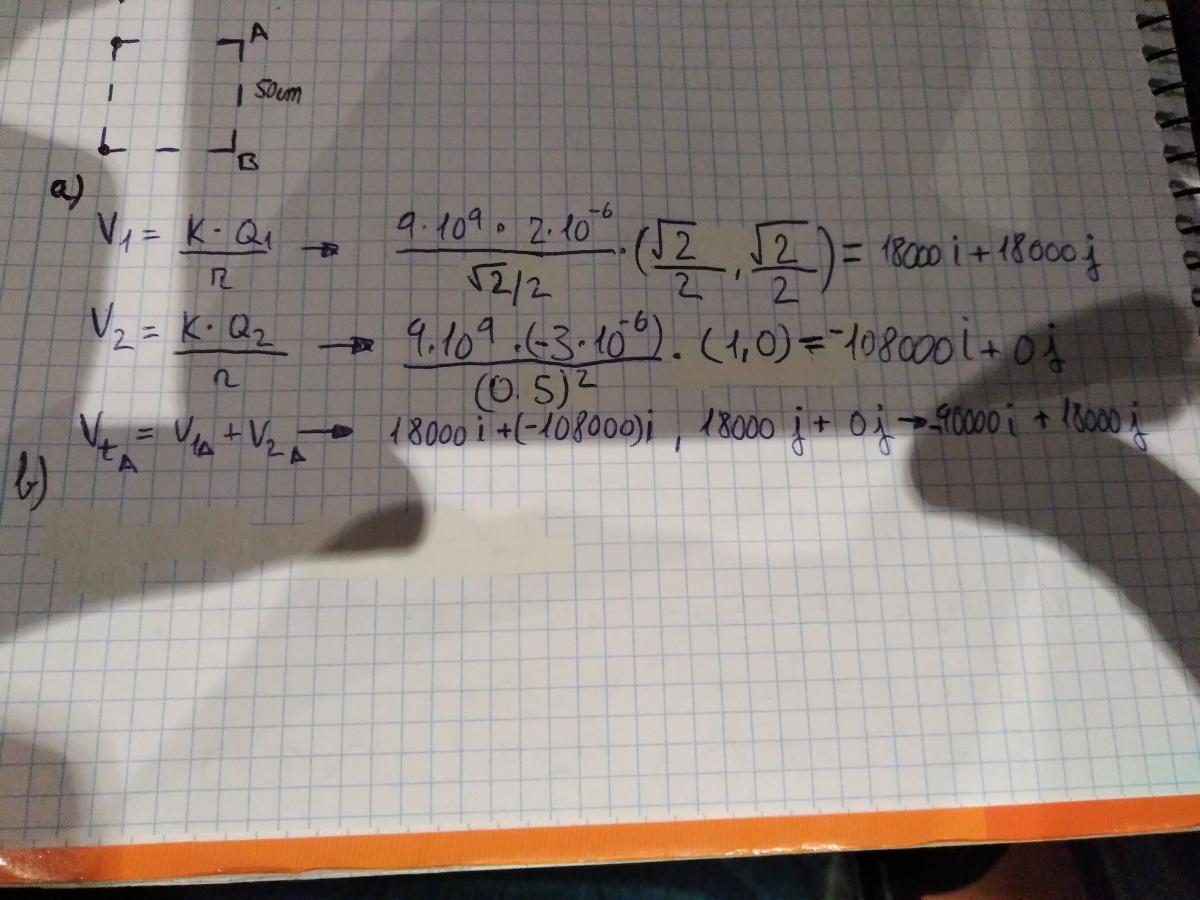 A
50cm
B
a)
V₁ = K · Q₁ / r → 9·10⁹ · 2·10⁻⁶ / √2/2 · (√2/2 , √2/2) = 18000 i + 18000 j
V₂ = K · Q₂ / r → 9·10⁹ · (-3·10⁻⁶) / (0.5)² · (1,0) = -108000 i + 0 j
V_tA = V₁A + V₂A → 18000 i + (-108000) i , 18000 j + 0 j → -90000 i + 18000 j
b)